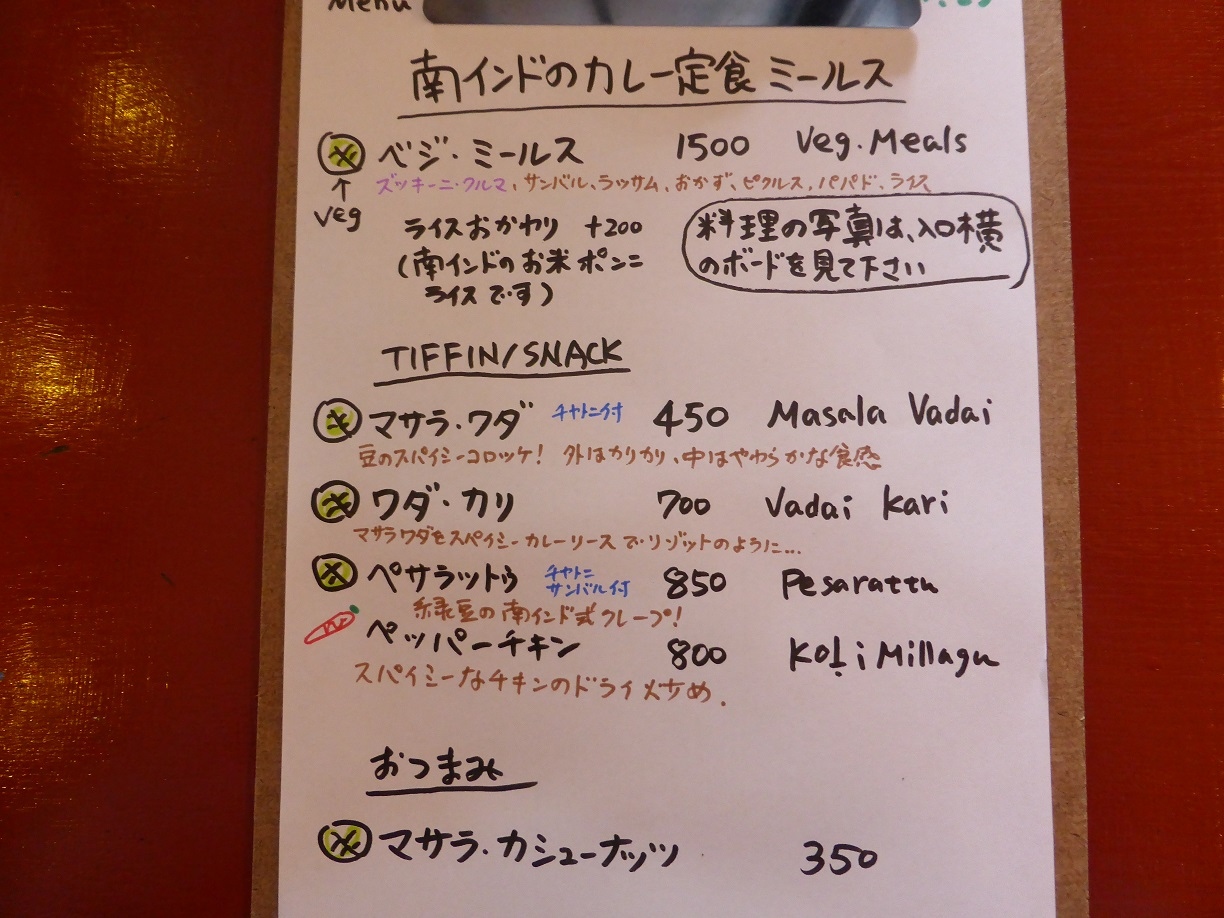 Menu
南インドのカレー定食 ミールス
ベジ・ミールス 1500 Veg.Meals
ズッキーニ・クルマ、サンバル、ラッサム、おかず、ピクルス、パパド、ライス
veg
ライスおかわり +200
(南インドのお米 ポンニ
ライスです)
料理の写真は、入口横
のボードを見て下さい
TIFFIN/SNACK
マサラ・ワダ チャトニ付 450 Masala Vadai
豆のスパイシーコロッケ! 外はカリカリ、中はやわらかな食感
ワダ・カリ 700 Vadai Kari
マサラワダをスパイシーカレーソースでリゾットのように…
ペサラットゥ チャトニ サンバル付 850 Pesarattu
緑豆の南インド式クレープ!
ペッパーチキン 800 Koḻi Millagu
スパイシーなチキンのドライ炒め.
おつまみ
マサラ・カシューナッツ 350